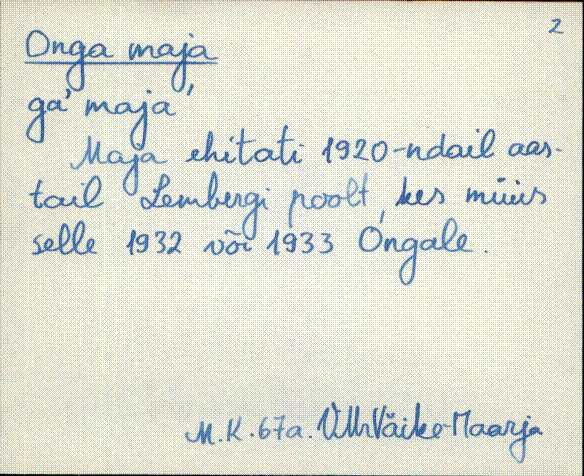 2
Onga maja
ga' maja'
Maja ehitati 1920-ndail aas-
tail Lembergi poolt, kes müüs
selle 1932 või 1933 Ongale.
M.K. 67a. VMr Väike-Maarja